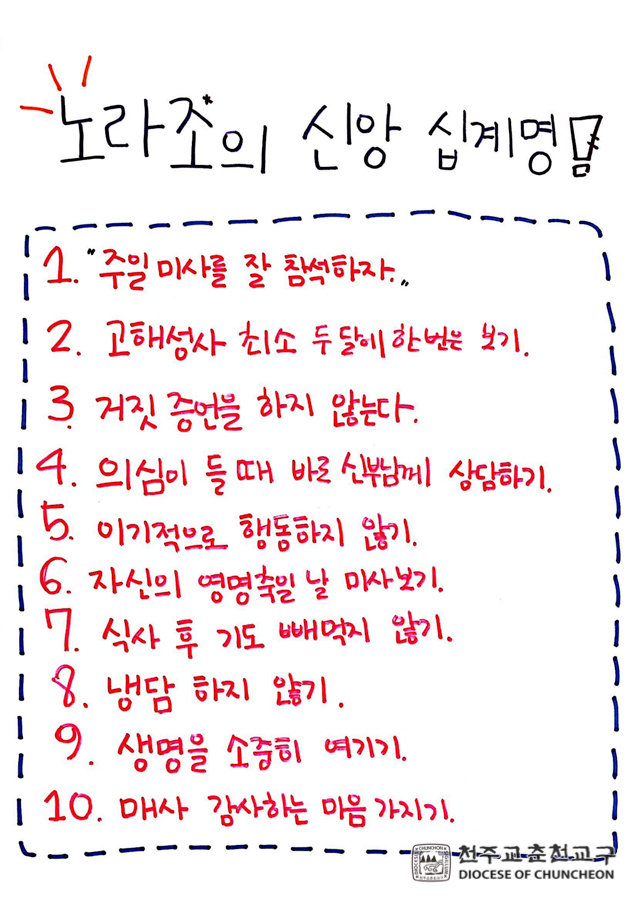 노라조*의 신앙 십계명!
1. "주일 미사를 잘 참석하자."
2. 고해성사 최소 두 달에 한 번은 보기.
3. 거짓 증언을 하지 않는다.
4. 의심이 들 때 바로 신부님께 상담하기.
5. 이기적으로 행동하지 않기.
6. 자신의 영명축일 날 미사 보기.
7. 식사 후 기도 빼먹지 않기.
8. 냉담 하지 않기.
9. 생명을 소중히 여기기.
10. 매사 감사하는 마음 가지기.
천주교춘천교구
DIOCESE OF CHUNCHEON